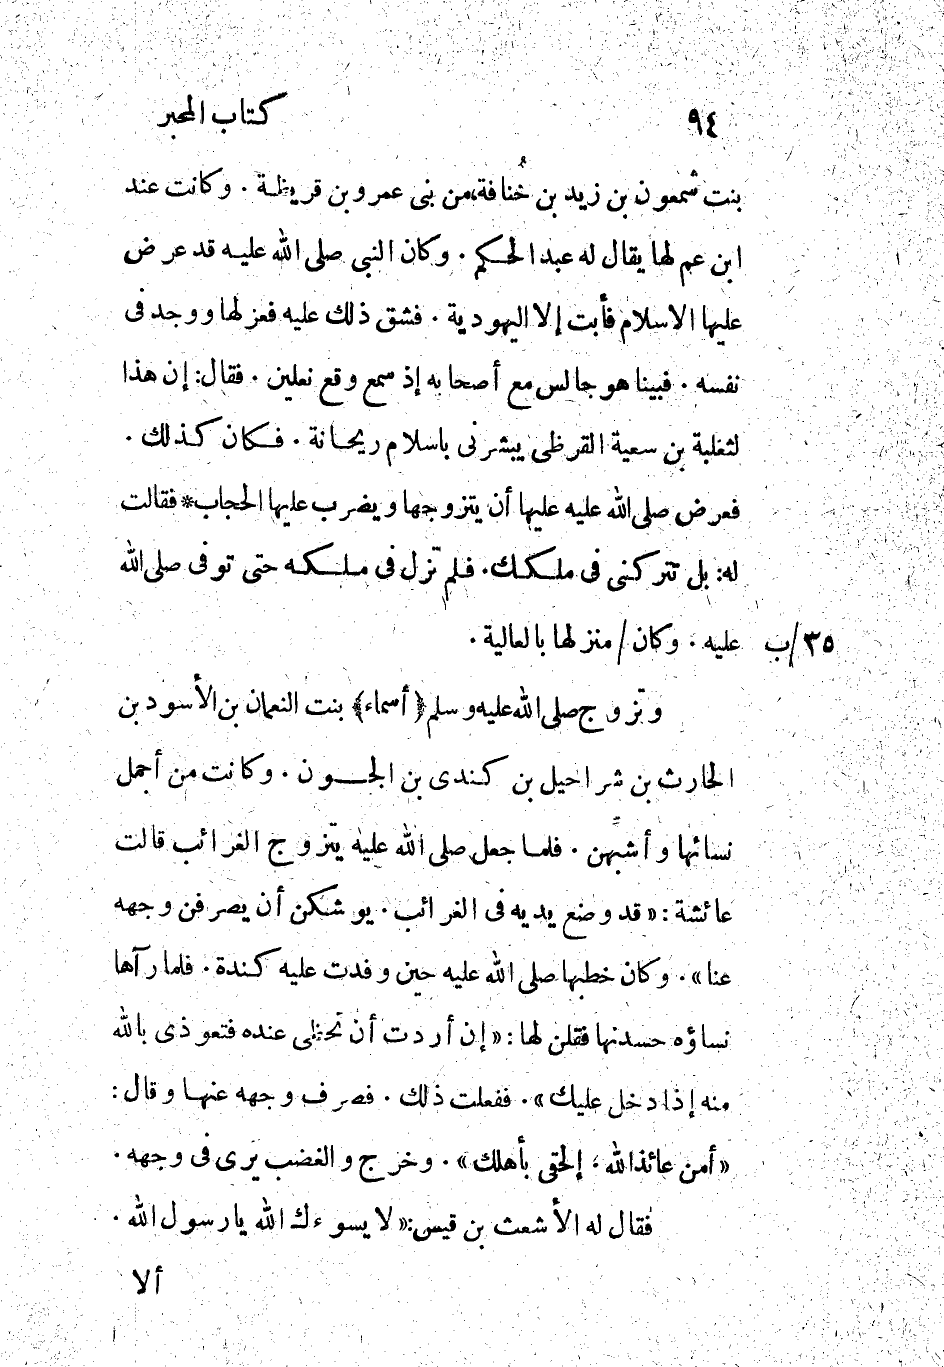 ٩٤ كتاب المحبر
بنت شمعون بن زيد بن خُنافة، من بنى عمرو بن قريظة . وكانت عند
ابن عم لها يقال له عبد الحكم . وكان النبى صلى الله عليه قد عرض
عليها الاسلام فأبت إلا اليهودية . فشق ذلك عليه فعزلها ووجد فى
نفسه . فبينا هو جالس مع أصحابه إذ سمع وقع نعلين . فقال: إن هذا
لثعلبة بن سعية القرظى يبشرنى باسلام ريحانة . فكان كذلك .
فعرض صلى الله عليه عليها أن يتزوجها ويضرب عليها الحجاب* فقالت
له: بل تتركنى فى ملكك . فلم تزل فى ملكه حتى توفى صلى الله
٣٥/ب عليه . وكان / منزلها بالعالية .
وتزوج صلى الله عليه وسلم ﴿أسماء﴾ بنت النعمان بن الأسود بن
الحارث بن شراحيل بن كندى بن الجون . وكانت من أجمل
نسائها وأشبّهن . فلما جعل صلى الله عليه يتزوج الغرائب قالت
عائشة : «قد وضع يديه فى الغرائب . يوشكن أن يصرفن وجهه
عنا» . وكان خطبها صلى الله عليه حين وفدت عليه كندة . فلما رآها
نساؤه حسدنها فقلن لها : «إن أردت أن تحظى عنده فتعوذى بالله
منه إذا دخل عليك» . ففعلت ذلك . فصرف وجهه عنها وقال :
«أمن عائذ الله ، إلحقى بأهلك» . وخرج والغضب يرى فى وجهه .
فقال له الأشعث بن قيس: «لا يسوءك الله يا رسول الله .
ألا